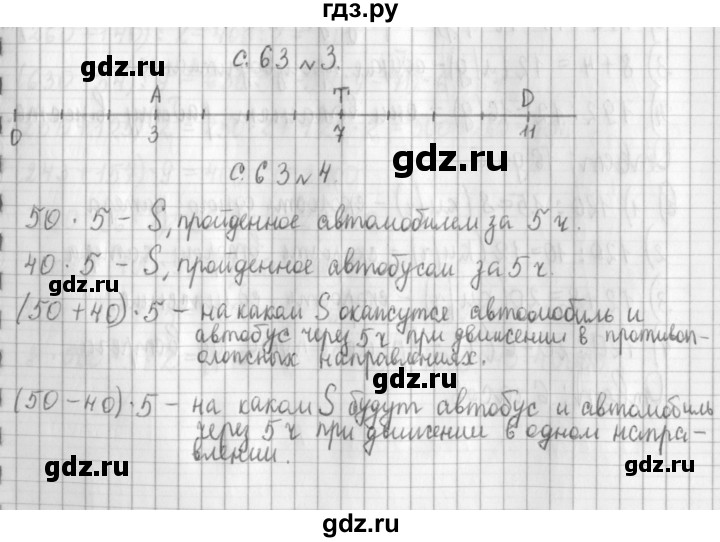 гдз.ру
с. 63 №3.
gdz.ru
A T D
0 3 7 11
gdz.ru
с. 63 №4.
50 · 5 – S, пройденное автомобилем за 5 ч.
40 · 5 – S, пройденное автобусом за 5 ч.
gdz.ru
(50 + 40) · 5 – на каком S окажутся автомобиль и
автобус через 5 ч при движении в противоп-
оложных направлениях.
gdz.ru
(50 – 40) · 5 – на каком S будут автобус и автомобиль
gdz.ru
через 5 ч при движении в одном напра-
влении.
gdz.ru
gdz.ru
gdz.ru